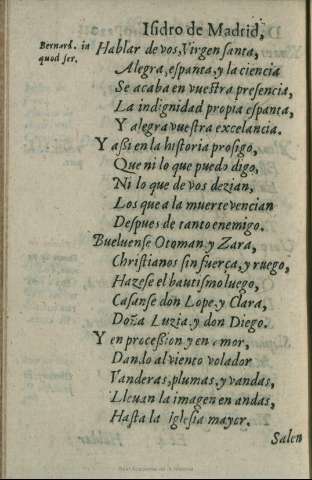 Isidro de Madrid,
Bernard. in
quod ser.
Hablar de vos, Virgen santa,
Alegra, espanta, y la ciencia
Se acaba en vuestra presencia,
La indignidad propia espanta,
Y alegra vuestra excelancia.
Y assi en la historia prosigo,
Que ni lo que puedo digo,
Ni lo que de vos dezian,
Los que a la muerte vencian
Despues de tanto enemigo.
Bueluense Otoman y Zara,
Christianos sin fuerça, y ruego,
Hazese el bautismo luego,
Casanse don Lope, y Clara,
Doña Luzia, y don Diego.
Y en procession y en amor,
Dando al viento volador
Vanderas, plumas, y vandas,
Lleuan la imagen en andas,
Hasta la iglesia mayor.
Salen
Real Academia de la Historia